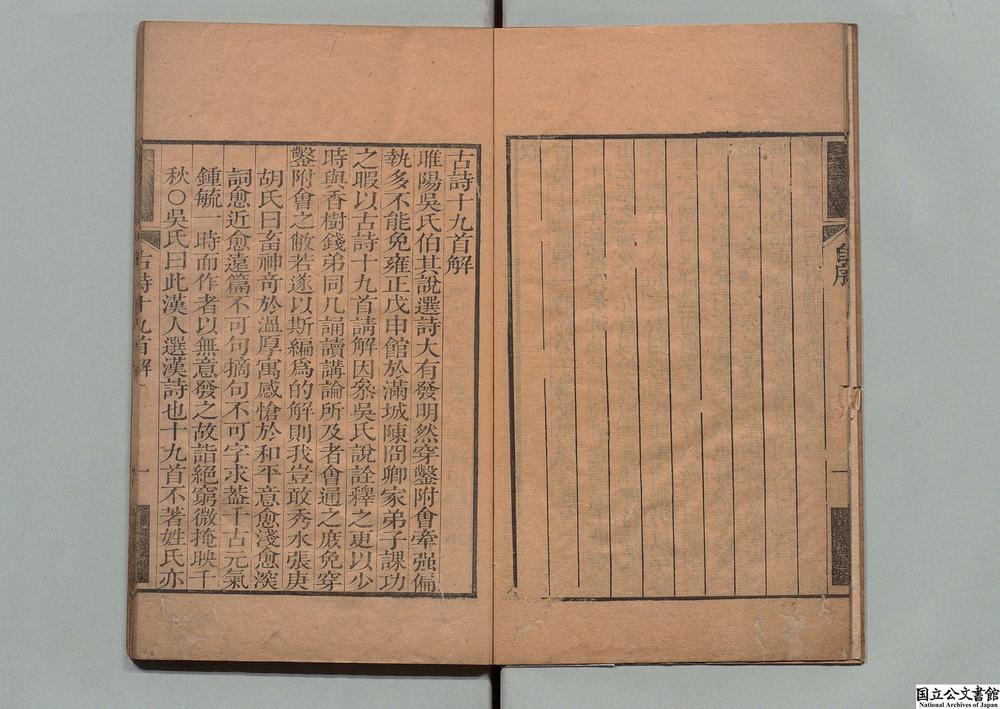 自序
古詩十九首解
睢陽吳氏伯其說選詩大有發明然穿鑿附會牽强偏
執多不能免雍正戊申館於滿城陳冏卿家弟子課功
之暇以古詩十九首請解因叅吳氏說詮釋之更以少
時與香樹錢弟同几誦讀講論所及者會通之庶免穿
鑿附會之敝若遂以斯編爲的解則我豈敢秀水張庚
胡氏曰畜神奇於溫厚寓感愴於和平意愈淺愈深
詞愈近愈遠篇不可句摘句不可字求葢千古元氣
鍾毓一時而作者以無意發之故詣絕窮微掩映千
秋〇吳氏曰此漢人選漢詩也十九首不著姓氏亦
古詩十九首解
一
国立公文書館
National Archives of Japan